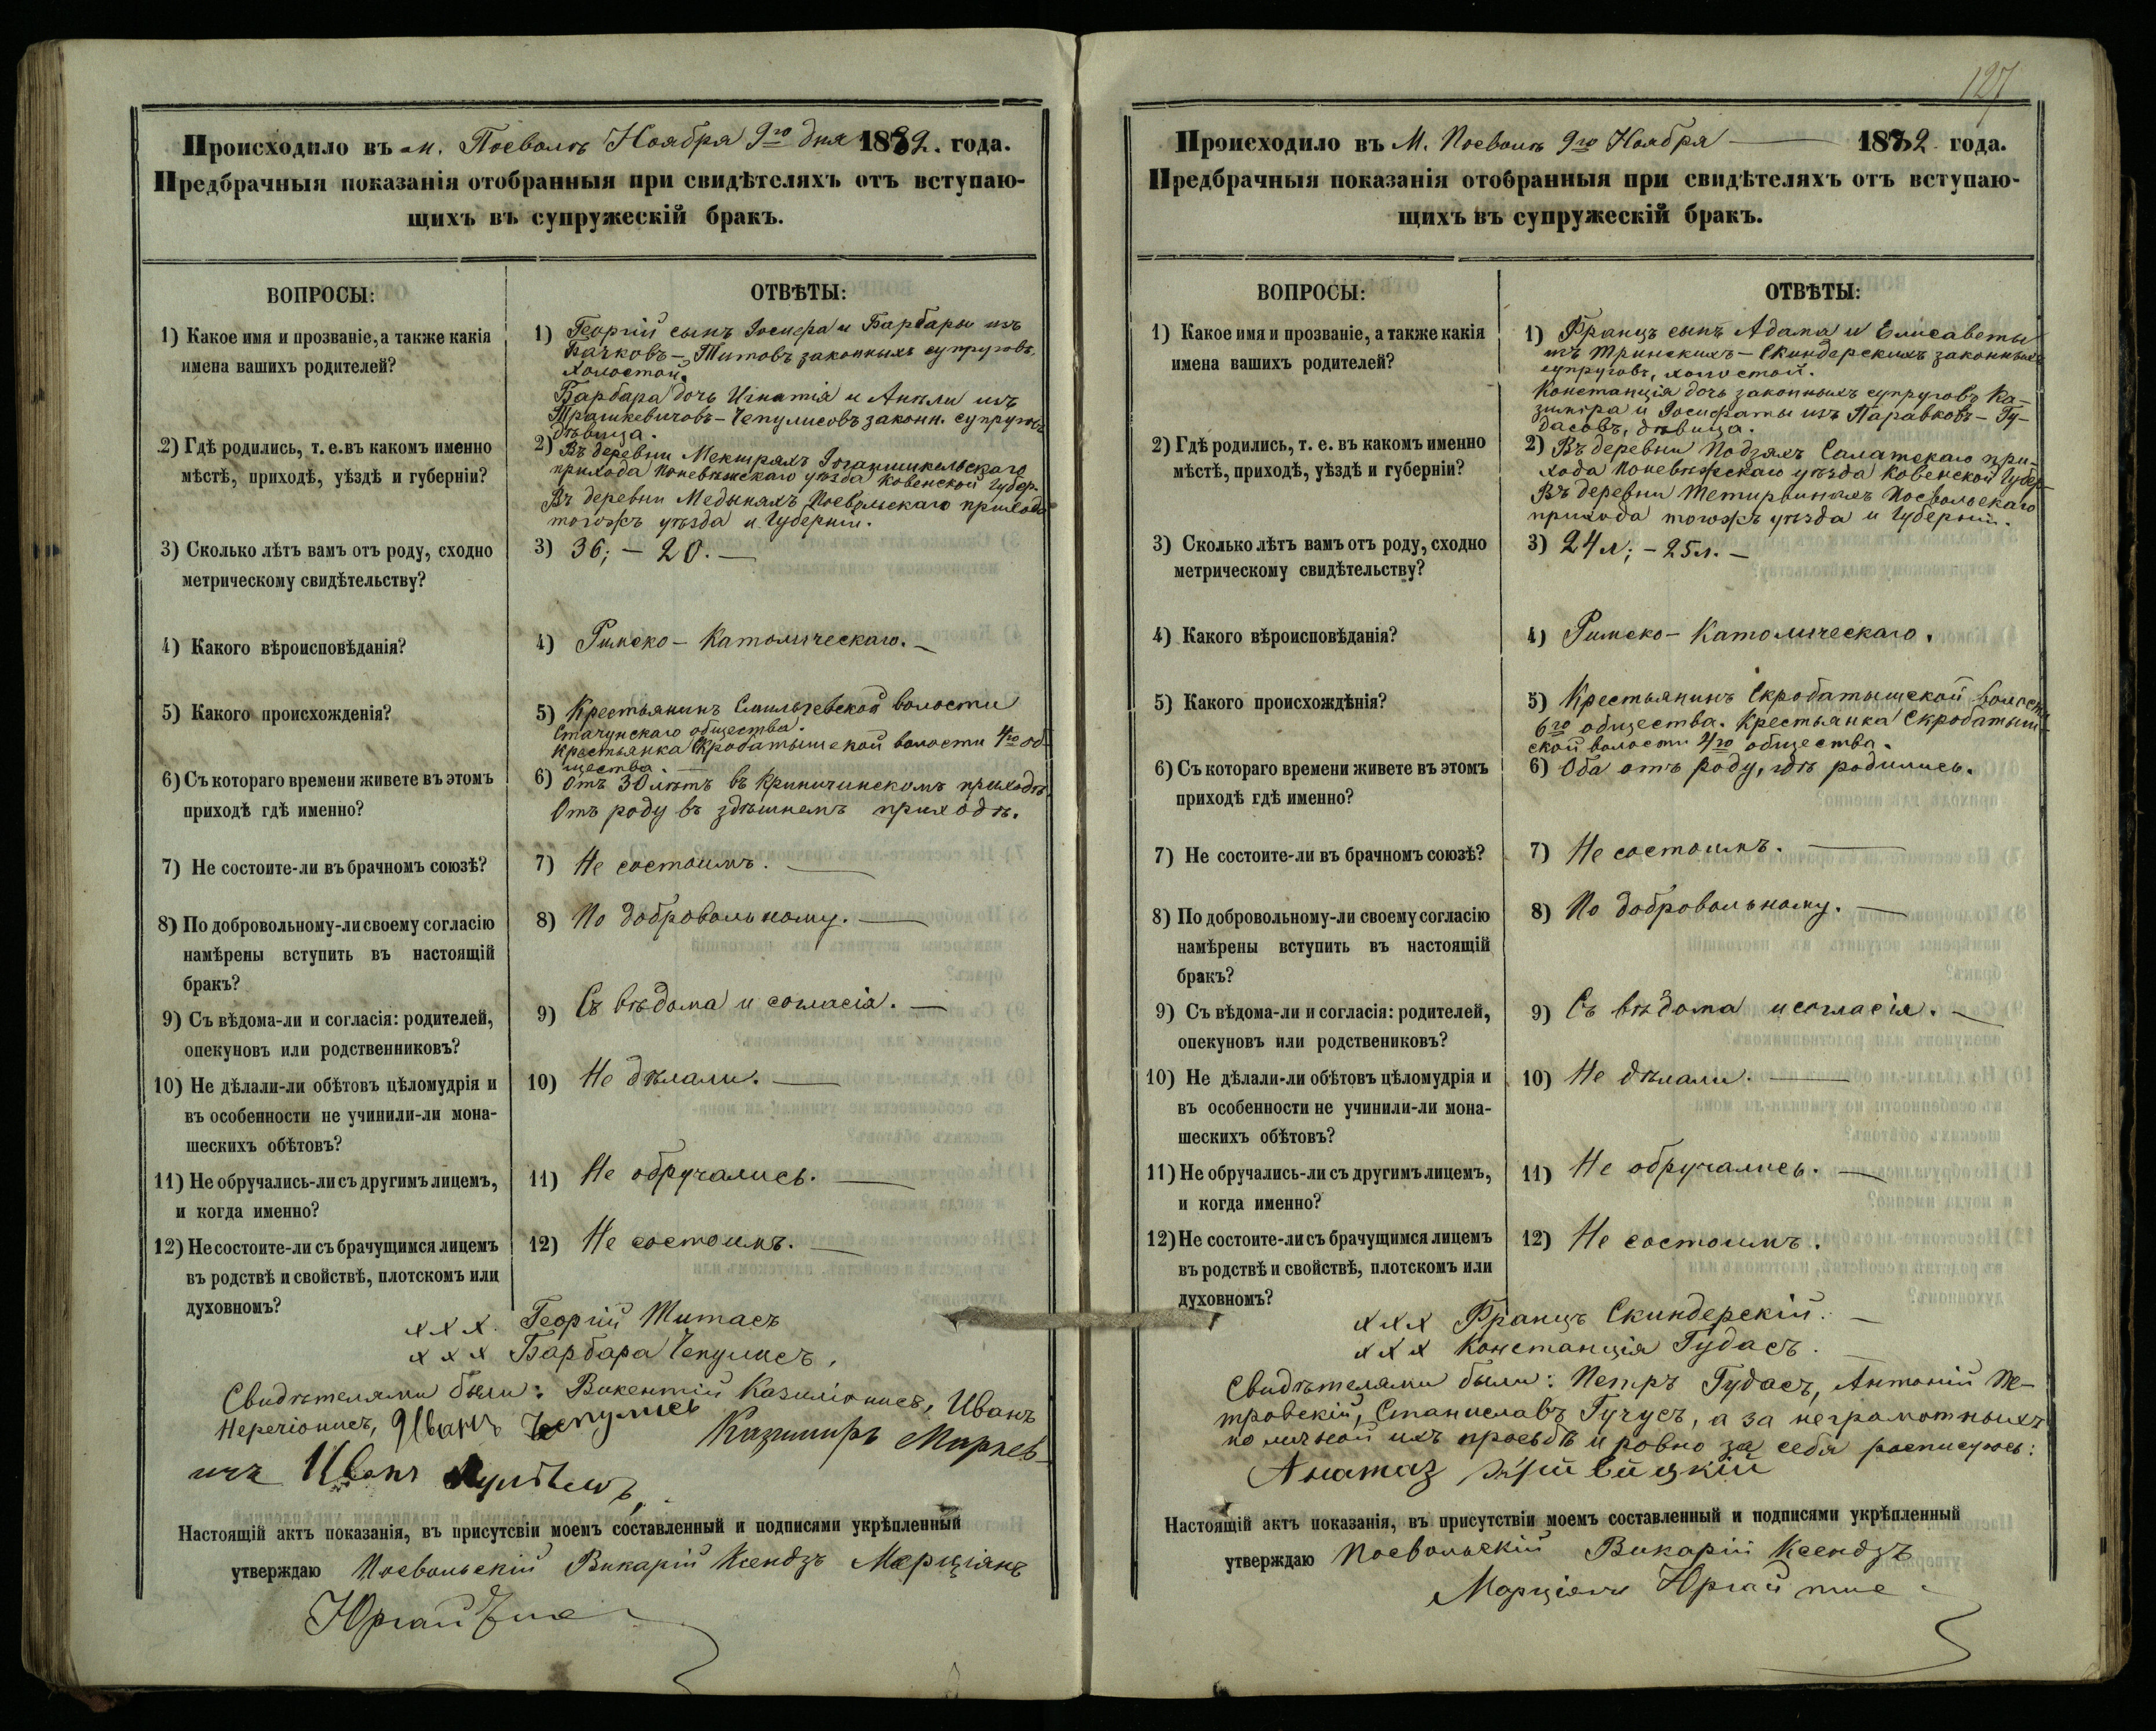 Происходило въ м. Поеволѣ Ноября 9го дня 1882. года.
Предбрачныя показанія отобранныя при свидѣтеляхъ отъ вступаю-
щихъ въ супружескій бракъ.
ВОПРОСЫ:
1) Какое имя и прозваніе, а также какія
имена вашихъ родителей?
2) Гдѣ родились, т. е. въ какомъ именно
мѣстѣ, приходѣ, уѣздѣ и губерніи?
3) Сколько лѣтъ вамъ отъ роду, сходно
метрическому свидѣтельству?
4) Какого вѣроисповѣданія?
5) Какого происхожденія?
6) Съ котораго времени живете въ этомъ
приходѣ гдѣ именно?
7) Не состоите-ли въ брачномъ союзѣ?
8) По добровольному-ли своему согласію
намѣрены вступить въ настоящій
бракъ?
9) Съ вѣдома-ли и согласія: родителей,
опекуновъ или родственниковъ?
10) Не дѣлали-ли обѣтовъ цѣломудрія и
въ особенности не учинили-ли мона-
шескихъ обѣтовъ?
11) Не обручались-ли съ другимъ лицемъ,
и когда именно?
12) Не состоите-ли съ брачущимся лицемъ
въ родствѣ и свойствѣ, плотскомъ или
духовномъ?
ОТВѢТЫ:
1) Георгій сынъ Іосифа и Барбары изъ
Бачковъ – Титовъ законныхъ супруговъ,
холостой.
Барбара дочь Игнатія и Анели изъ
Трашкевичовъ – Чепулисовъ законн. супруговъ
дѣвица.
2) Въ деревни Мекшряхъ Іоганишкельскаго
прихода Поневѣжскаго уѣзда Ковенской Губер.
Въ деревни Медыняхъ Поевольскаго прихода
тогожъ уѣзда и Губерніи.
3) 36; – 20. –
4) Римско – Католическаго. –
5) Крестьянинъ волости
общества.
Крестьянка Скробатышской волости 4го об-
щества. –
6) Отъ 30 лѣтъ въ Криничинскомъ приходѣ
Отъ роду въ здѣшнемъ приходѣ.
7) Не состоимъ. –
8) По добровольному. –
9) Съ вѣдома и согласія. –
10) Не дѣлали. –
11) Не обручались. –
12) Не состоимъ. –
х х х. Георгій Титасъ
х х х Барбара Чепулисъ,
Свидѣтелями были: Викентій Казиліонисъ, Иванъ
Нерегіонисъ, Иванъ Чепулисъ Казимиръ Маркев-
ичъ Иванъ
Настоящій актъ показанія, въ присутсвіи моемъ составленный и подписями укрѣпленный
утверждаю Поевольскій Викарій Ксендзъ Марціянъ
Юргайтис
127
Происходило въ М. Поеволѣ 9го Ноября – 1882 года.
Предбрачныя показанія отобранныя при свидѣтеляхъ отъ вступаю-
щихъ въ супружескій бракъ.
ВОПРОСЫ:
1) Какое имя и прозваніе, а также какія
имена вашихъ родителей?
2) Гдѣ родились, т. е. въ какомъ именно
мѣстѣ, приходѣ, уѣздѣ и губерніи?
3) Сколько лѣтъ вамъ отъ роду, сходно
метрическому свидѣтельству?
4) Какого вѣроисповѣданія?
5) Какого происхождѣнія?
6) Съ котораго времени живете въ этомъ
приходѣ гдѣ именно?
7) Не состоите-ли въ брачномъ союзѣ?
8) По добровольному-ли своему согласію
намѣрены вступить въ настоящій
бракъ?
9) Съ вѣдома-ли и согласія: родителей,
опекуновъ или родствениковъ?
10) Не дѣлали-ли обѣтовъ цѣломудрія и
въ особенности не учинили-ли мона-
шескихъ обѣтовъ?
11) Не обручались-ли съ другимъ лицемъ,
и когда именно?
12) Не состоите-ли съ брачущимся лицемъ
въ родствѣ и свойствѣ, плотскомъ или
духовномъ?
ОТВѢТЫ:
1) Францъ сынъ Адама и Елисаветы
изъ – Скиндерскихъ законныхъ
супруговъ, холостой.
Констанція дочь законныхъ супруговъ Ка-
зиміра и Іосифаты изъ Паравковъ – Гу-
дасовъ, дѣвица.
2) Въ деревни Подзяхъ Салатскаго при-
хода Поневѣжскаго уѣзда Ковенской Губер-
Въ деревни Тетирвиняхъ Поевольскаго
прихода тогожъ уѣзда и Губерніи.
3) 24 л; – 25 л. –
4) Римско – Католическаго.
5) Крестьянинъ Скробатышской волости
6го общества. Крестьянка Скробатыш-
ской волости 4го общества.
6) Оба отъ роду, гдѣ родились.
7) Не состоимъ. –
8) По добровольному. –
9) Съ вѣдома и согласія. –
10) Не дѣлали. –
11) Не обручались. –
12) Не состоимъ.
х х х Францъ Скиндерскій. –
х х х Констанція Гудасъ.
Свидѣтелями были: Петръ Гудасъ, Антоній Пе-
тровскій, Станиславъ Гучусъ, а за неграмотныхъ
по личной ихъ просьбѣ и ровно за себя росписуюсь:
Настоящій актъ показанія, въ присутствіи моемъ составленный и подписями укрѣпленный
утверждаю Поевольскій Викарій Ксендзъ
Марціянъ Юргайтис